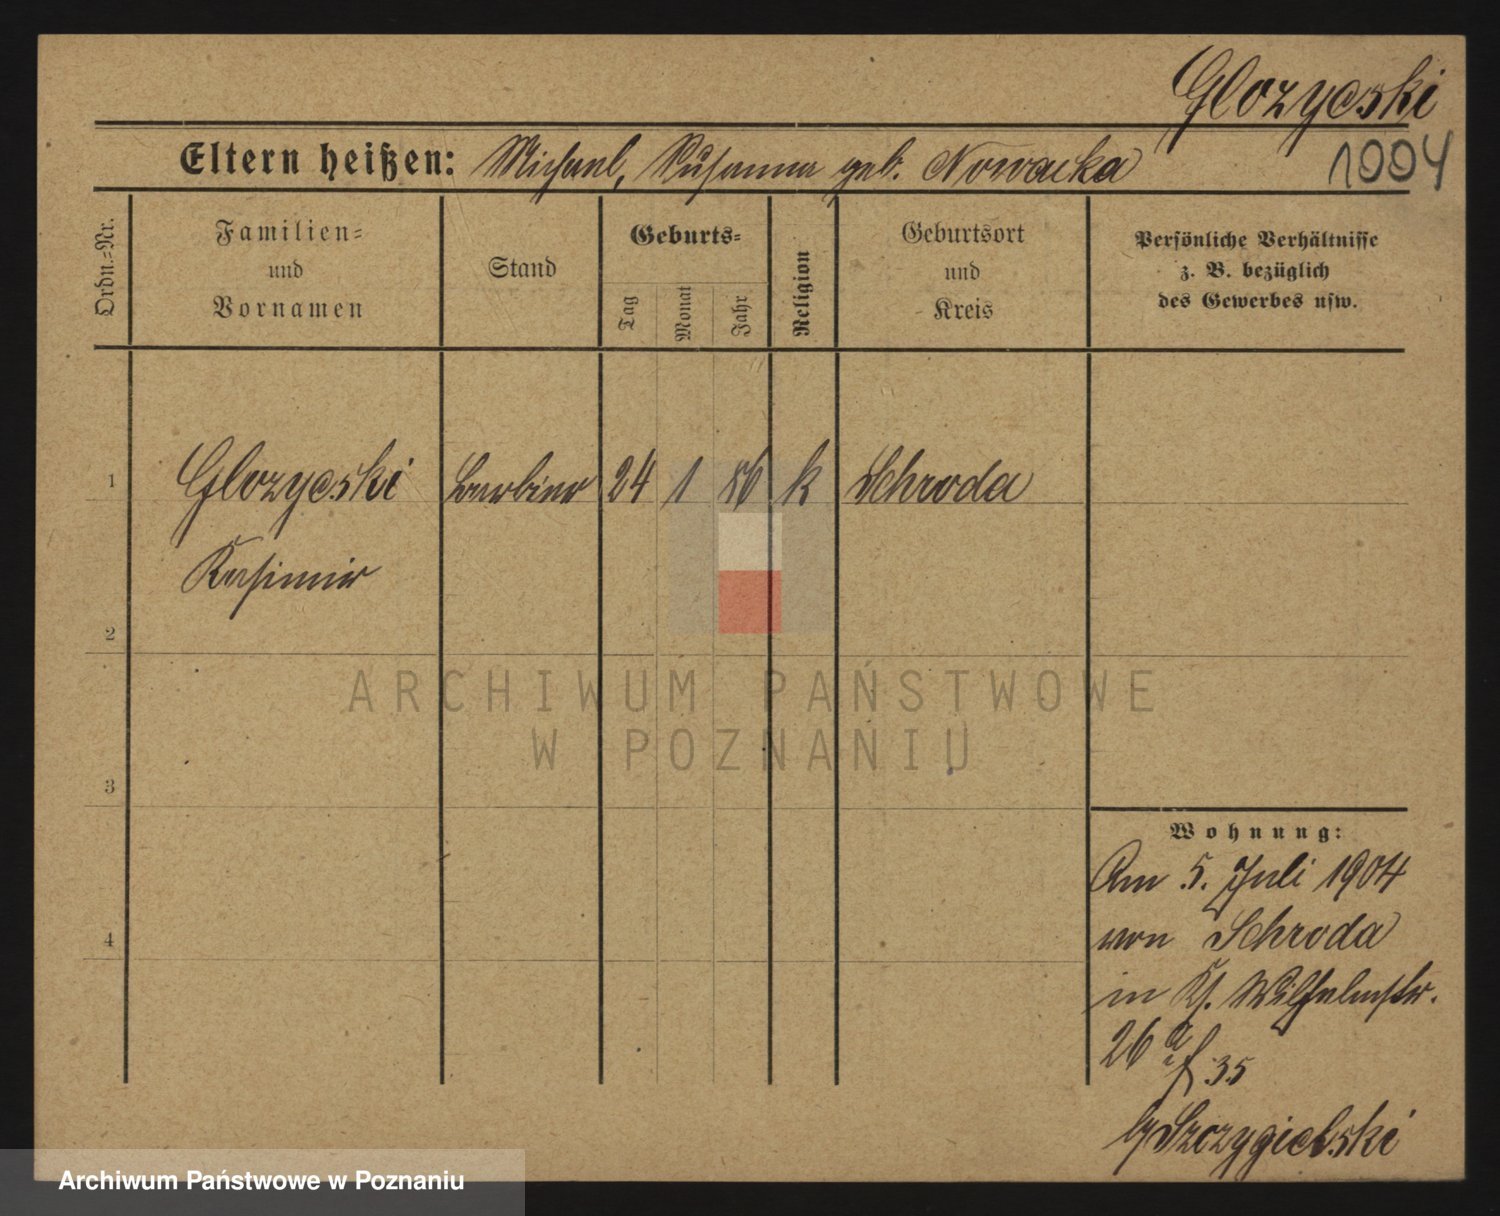 Glozycski
1004
Eltern heißen: Michael, Susanna geb. Nowacka
Ordn.-Nr.
Familien-
und
Vornamen
Stand
Geburts-
Tag
Monat
Jahr
Religion
Geburtsort
und
Kreis
Persönliche Verhältnisse
z. B. bezüglich
des Gewerbes usw.
1 Glozycski Barbier 24 1 86 k Schroda
Kasimir
2
3
4
ARCHIWUM PAŃSTWOWE
W POZNANIU
Wohnung:
Am 5. Juli 1904
von Schroda
in Wilhelmstr.
26 35
Szczygielski
Archiwum Państwowe w Poznaniu